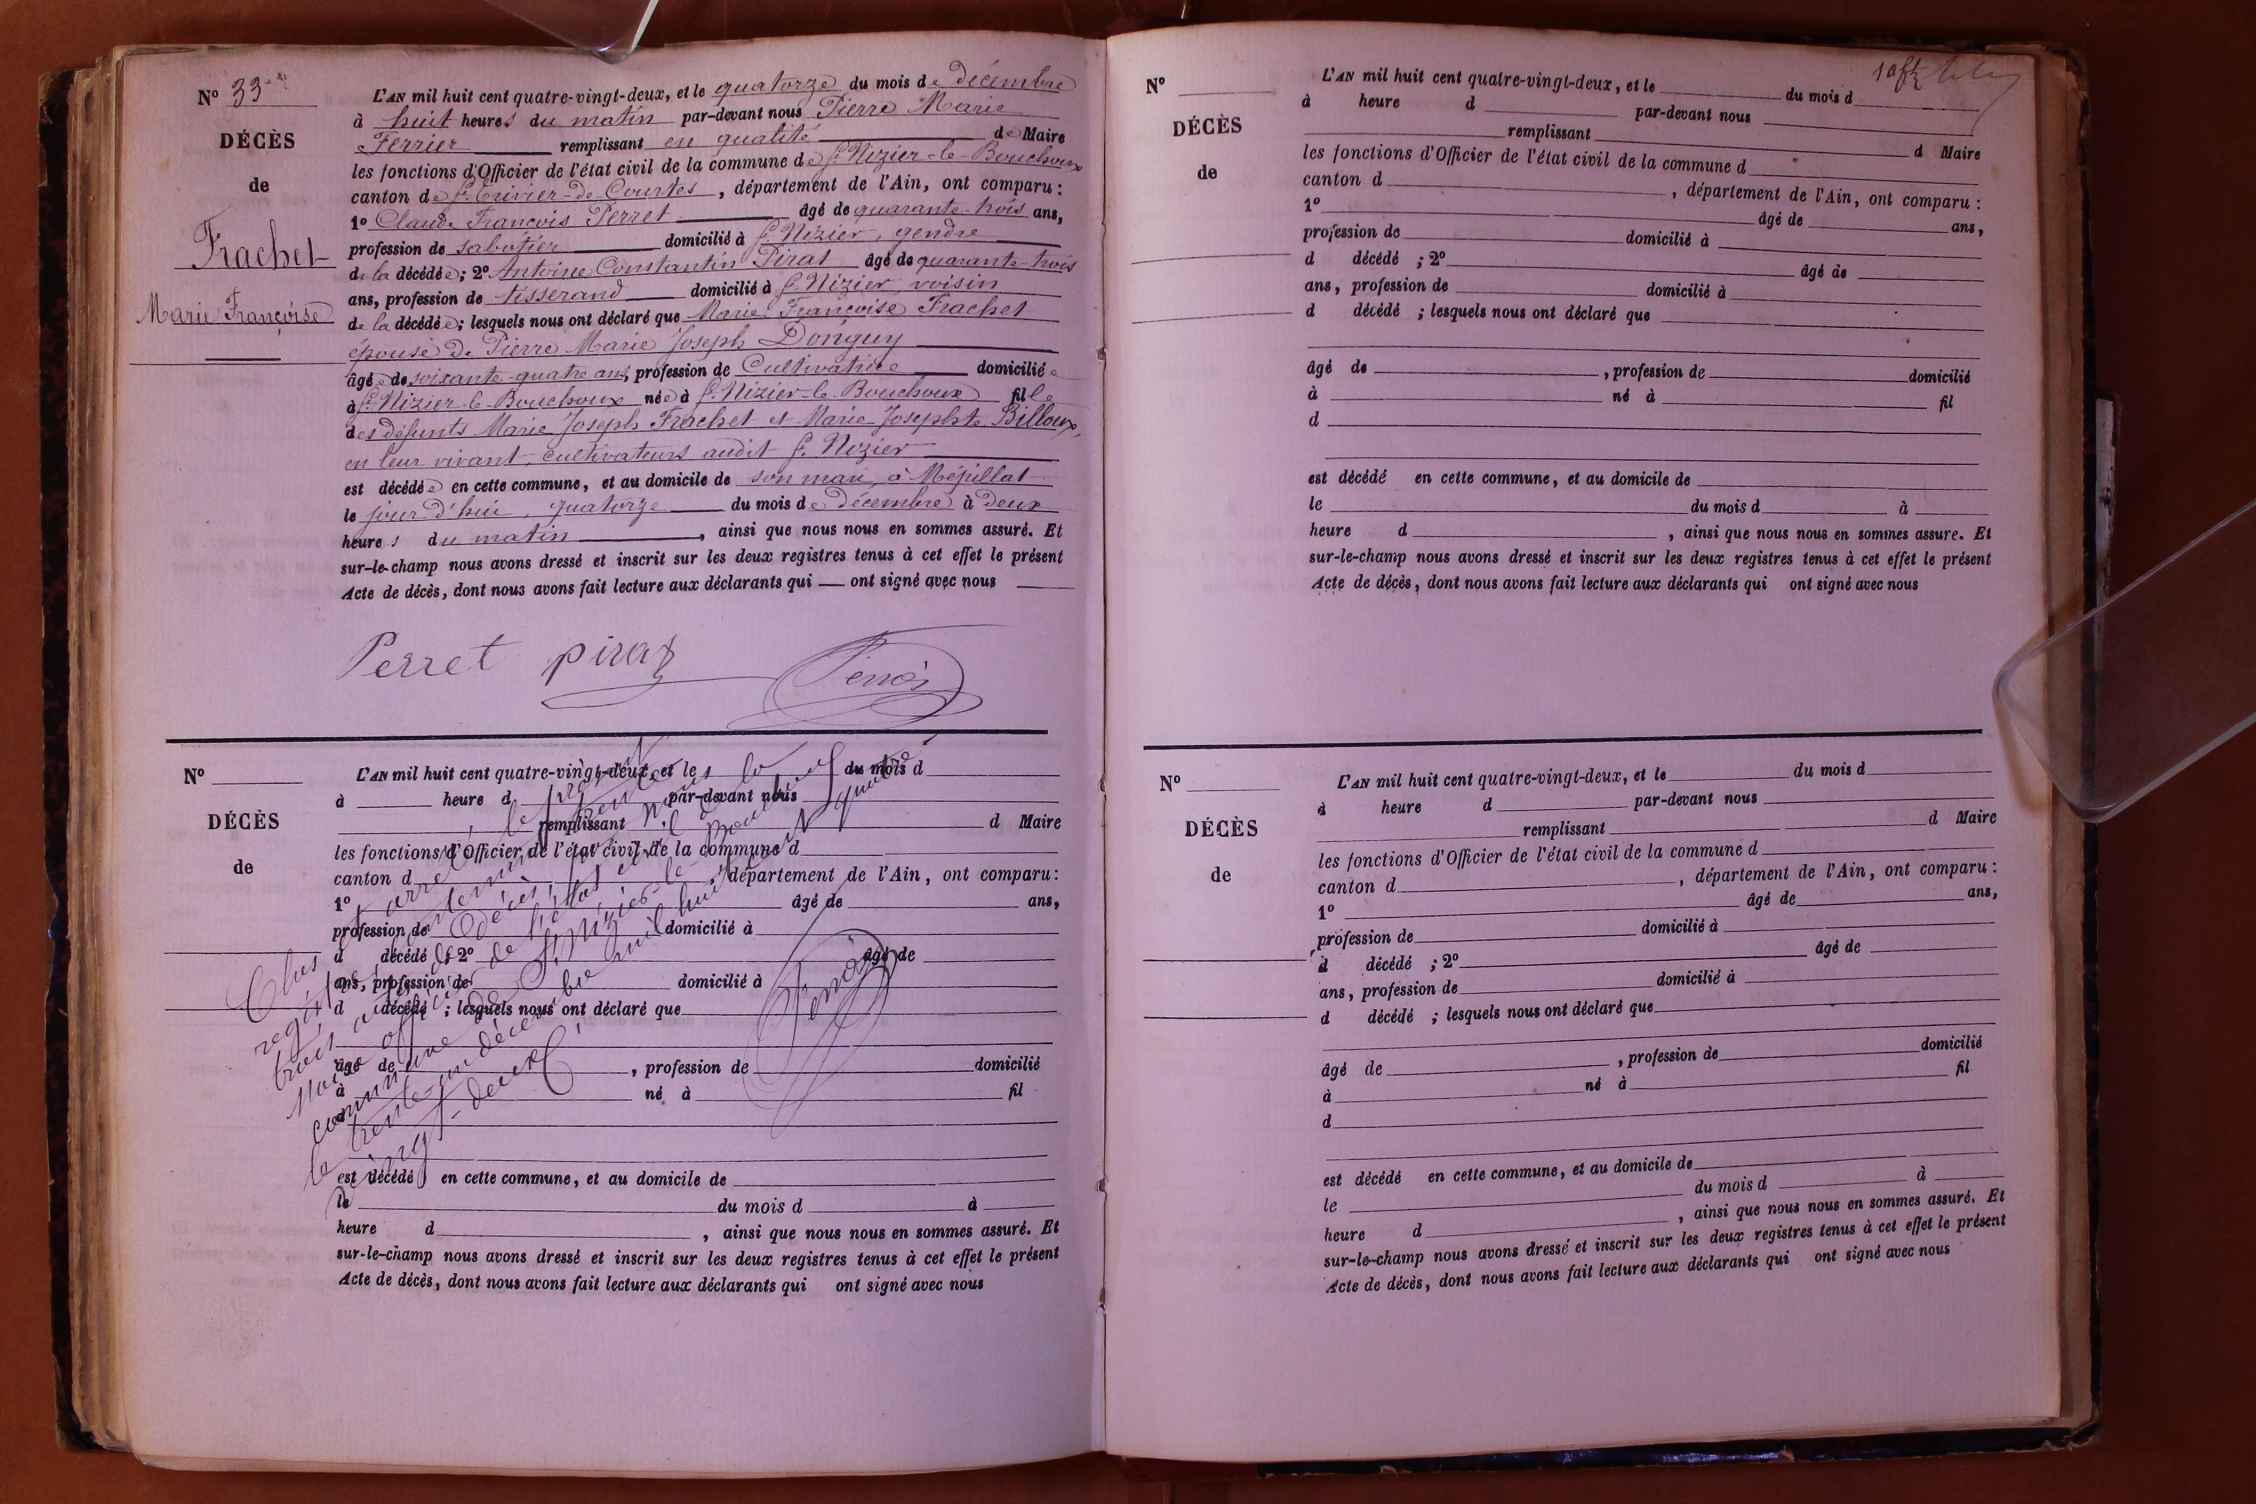 N° 33
DÉCÈS
de
Frachet
Marie Françoise
L'AN mil huit cent quatre-vingt-deux, et le quatorze du mois de décembre
à huit heures du matin par-devant nous Pierre Marie
Ferrier remplissant en qualité de Maire
les fonctions d'Officier de l'état civil de la commune de St Nizier-le-Bouchoux
canton de St Trivier-de-Courtes, département de l'Ain, ont comparu :
1° Claude François Perret âgé de quarante-trois ans,
profession de sabotier domicilié à St Nizier, gendre
de la décédée; 2° Antoine Constantin Pirat âgé de quarante-trois
ans, profession de tisserand domicilié à St Nizier, voisin
de la décédée; lesquels nous ont déclaré que Marie Françoise Frachet
épouse de Pierre Marie Joseph Donguy
âgée de soixante-quatre ans, profession de Cultivatrice domiciliée
à St Nizier-le-Bouchoux née à St Nizier-le-Bouchoux fille
des défunts Marie Joseph Frachet et Marie Josephte Billoux,
en leur vivant, cultivateurs audit St Nizier
est décédée en cette commune, et au domicile de son mari, à Mépillat
le jour d'hui, quatorze du mois de décembre à deux
heures du matin, ainsi que nous nous en sommes assuré. Et
sur-le-champ nous avons dressé et inscrit sur les deux registres tenus à cet effet le présent
Acte de décès, dont nous avons fait lecture aux déclarants qui ont signé avec nous
Perret Pirat
N°
DÉCÈS
de
L'AN mil huit cent quatre-vingt-deux, et le du mois d
à heure d par-devant nous
remplissant d Maire
les fonctions d'Officier de l'état civil de la commune d
canton d , département de l'Ain, ont comparu :
1° âgé de ans,
profession de domicilié à
d décédé ; 2° âgé de
ans, profession de domicilié à
d décédé ; lesquels nous ont déclaré que
âgé de , profession de domicilié
à né à fil
d
est décédé en cette commune, et au domicile de
le du mois d à
heure d , ainsi que nous nous en sommes assuré. Et
sur-le-champ nous avons dressé et inscrit sur les deux registres tenus à cet effet le présent
Acte de décès, dont nous avons fait lecture aux déclarants qui ont signé avec nous
Clos et arrêté le présent
registre contenant trente
trois actes de décès, par nous
Maire officier de l'état civil de la
commune de St Nizier-le-Bouchoux
le trente-un décembre mil huit cent quatre
vingt-deux
N°
DÉCÈS
de
L'AN mil huit cent quatre-vingt-deux, et le du mois d
à heure d par-devant nous
remplissant d Maire
les fonctions d'Officier de l'état civil de la commune d
canton d , département de l'Ain, ont comparu :
1° âgé de ans,
profession de domicilié à
d décédé ; 2° âgé de
ans, profession de domicilié à
d décédé ; lesquels nous ont déclaré que
âgé de , profession de domicilié
à né à fil
d
est décédé en cette commune, et au domicile de
le du mois d à
heure d , ainsi que nous nous en sommes assuré. Et
sur-le-champ nous avons dressé et inscrit sur les deux registres tenus à cet effet le présent
Acte de décès, dont nous avons fait lecture aux déclarants qui ont signé avec nous
N°
DÉCÈS
de
L'AN mil huit cent quatre-vingt-deux, et le du mois d
à heure d par-devant nous
remplissant d Maire
les fonctions d'Officier de l'état civil de la commune d
canton d , département de l'Ain, ont comparu :
1° âgé de ans,
profession de domicilié à
d décédé ; 2° âgé de
ans, profession de domicilié à
d décédé ; lesquels nous ont déclaré que
âgé de , profession de domicilié
à né à fil
d
est décédé en cette commune, et au domicile de
le du mois d à
heure d , ainsi que nous nous en sommes assuré. Et
sur-le-champ nous avons dressé et inscrit sur les deux registres tenus à cet effet le présent
Acte de décès, dont nous avons fait lecture aux déclarants qui ont signé avec nous